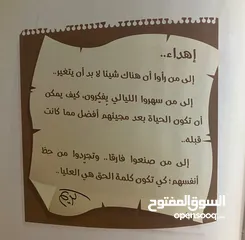 إهداء..
إلى من رأوا أن هناك شيئا لا بد أن يتغير..
إلى من سهروا الليالي يفكرون، كيف يمكن
أن تكون الحياة بعد مجيئهم أفضل مما كانت
قبله..
إلى من صنعوا فارقًا.. وتجردوا من حظ
أنفسهم؛ كي تكون كلمة الحق هي العليا..
السوق المفتوح
opensooq.com